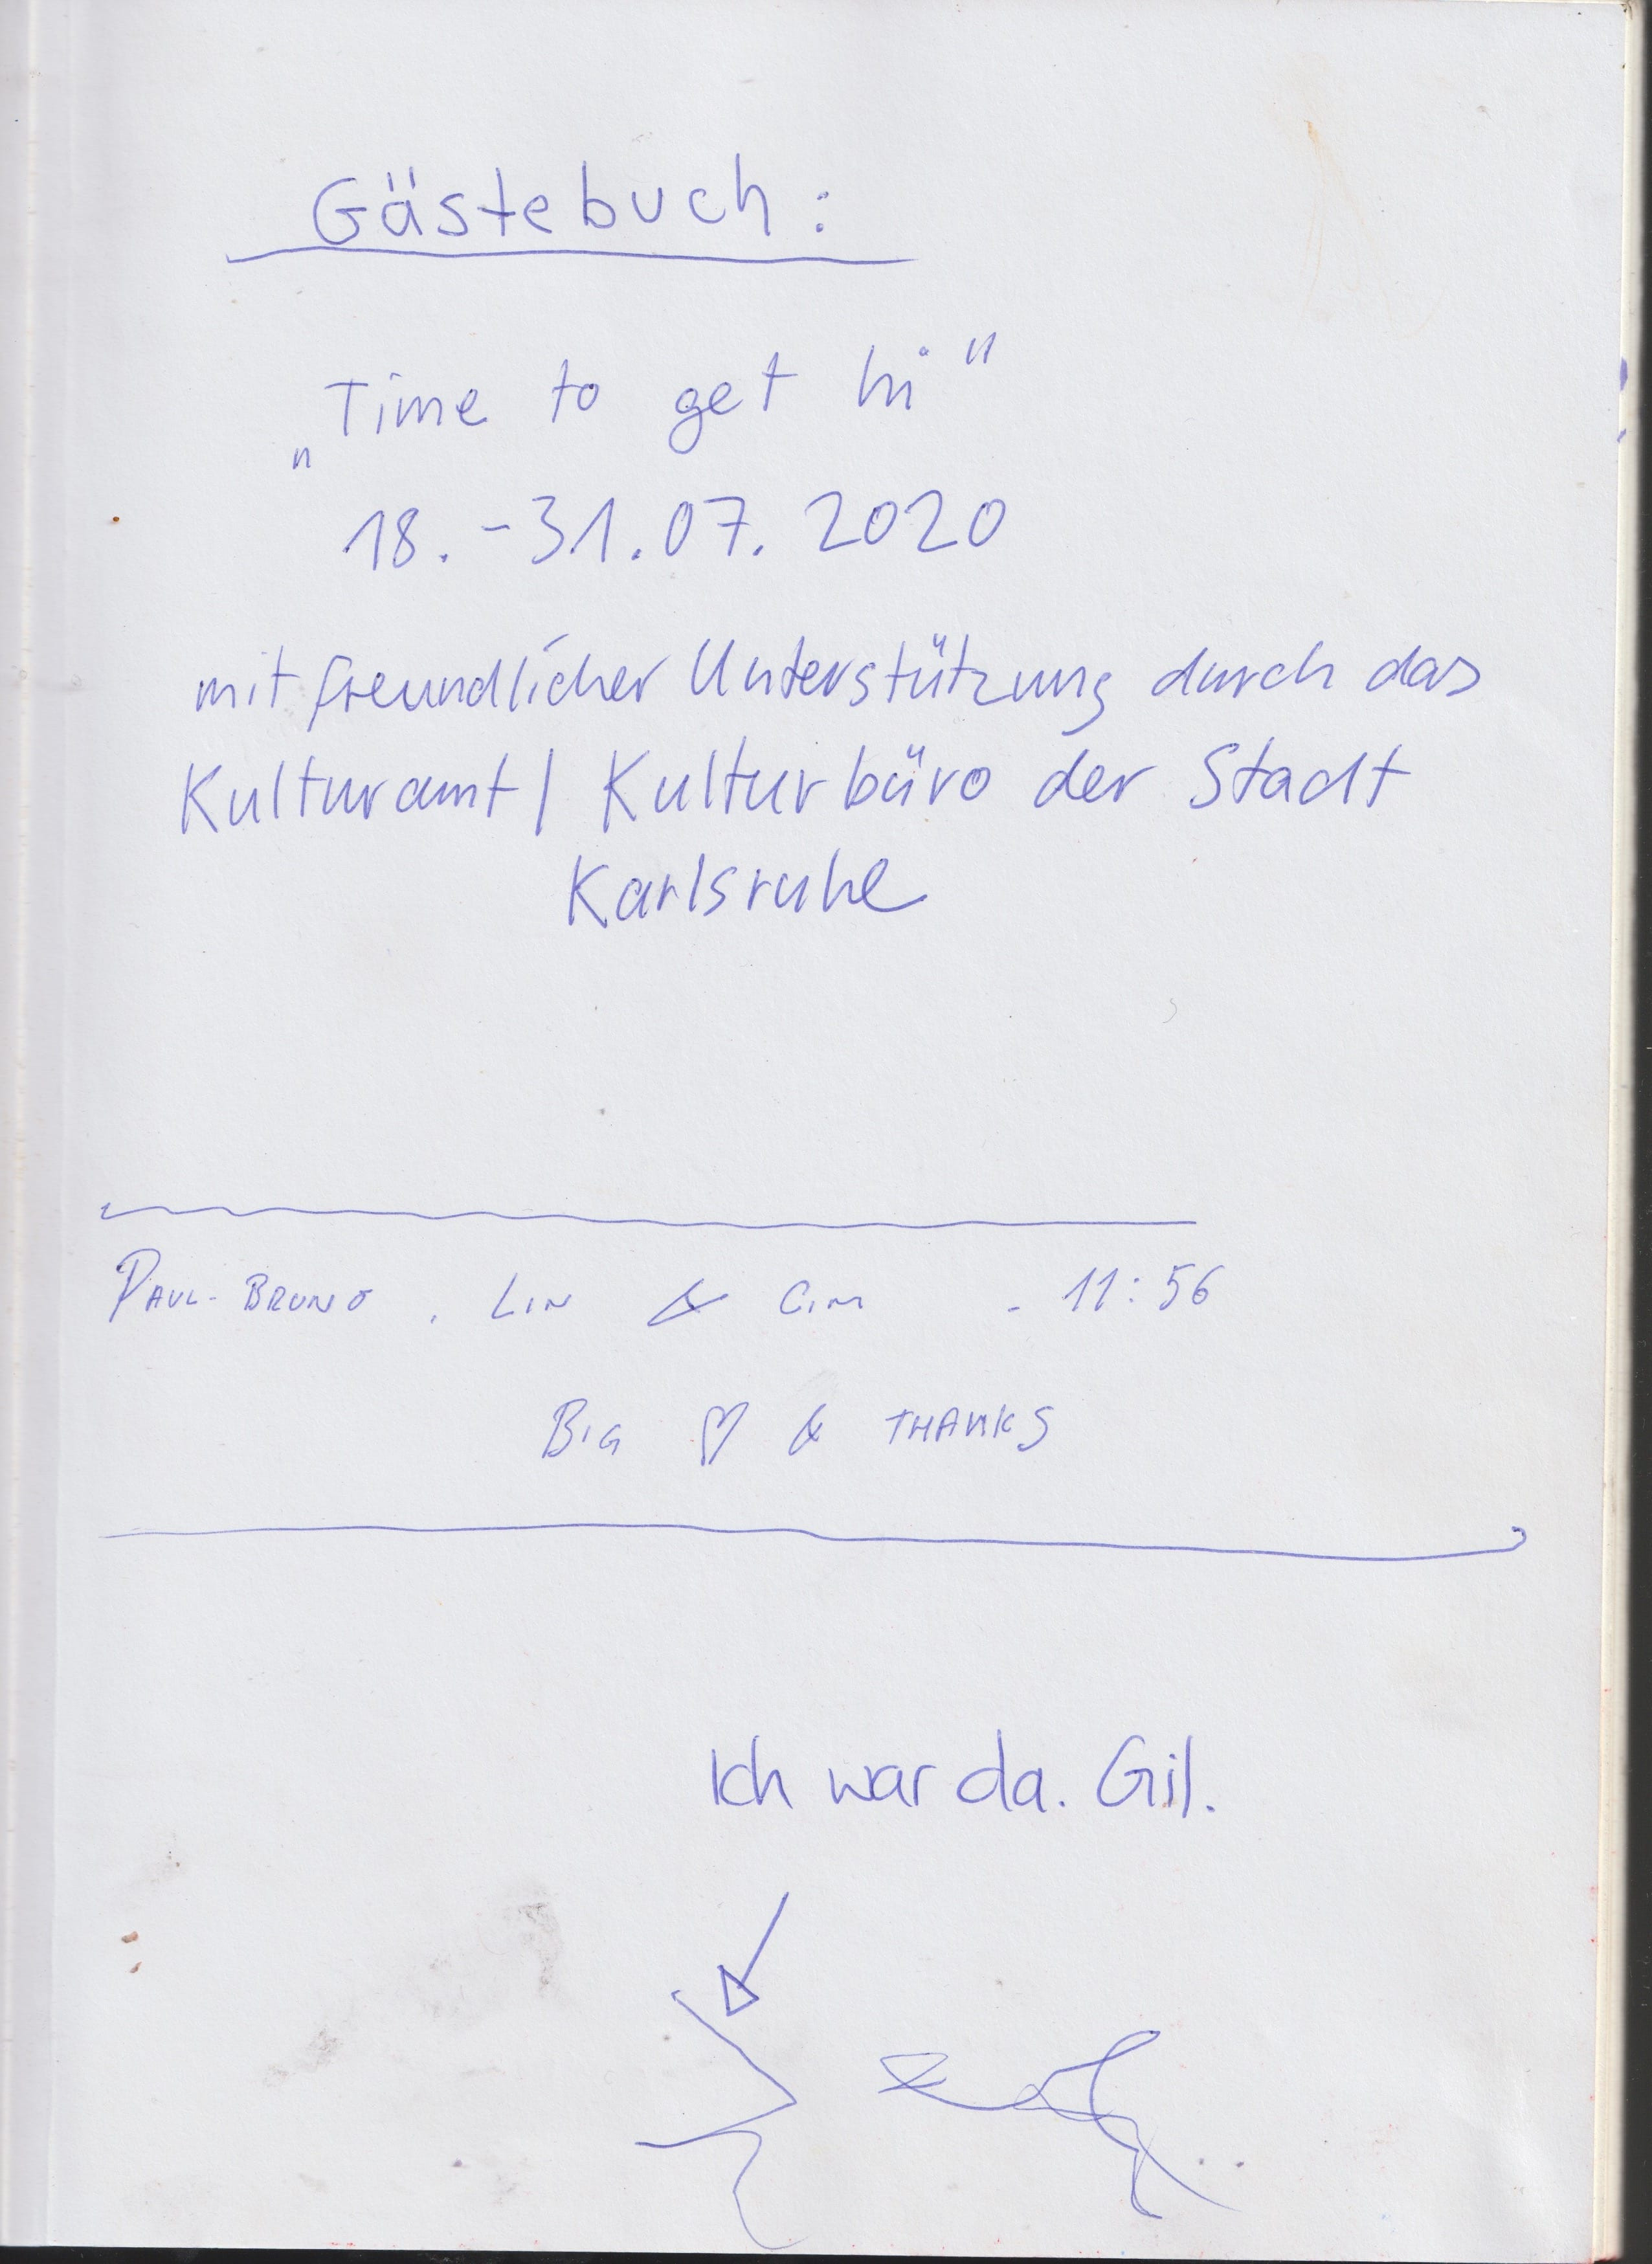 Gästebuch:
„Time to get hi"
18.-31.07.2020
mit freundlicher Unterstützung durch das
Kulturamt/ Kulturbüro der Stadt
Karlsruhe
PAUL-BRUNO, LIN & CIM - 11:56
BIG ♡ & THANKS
Ich war da. Gil.